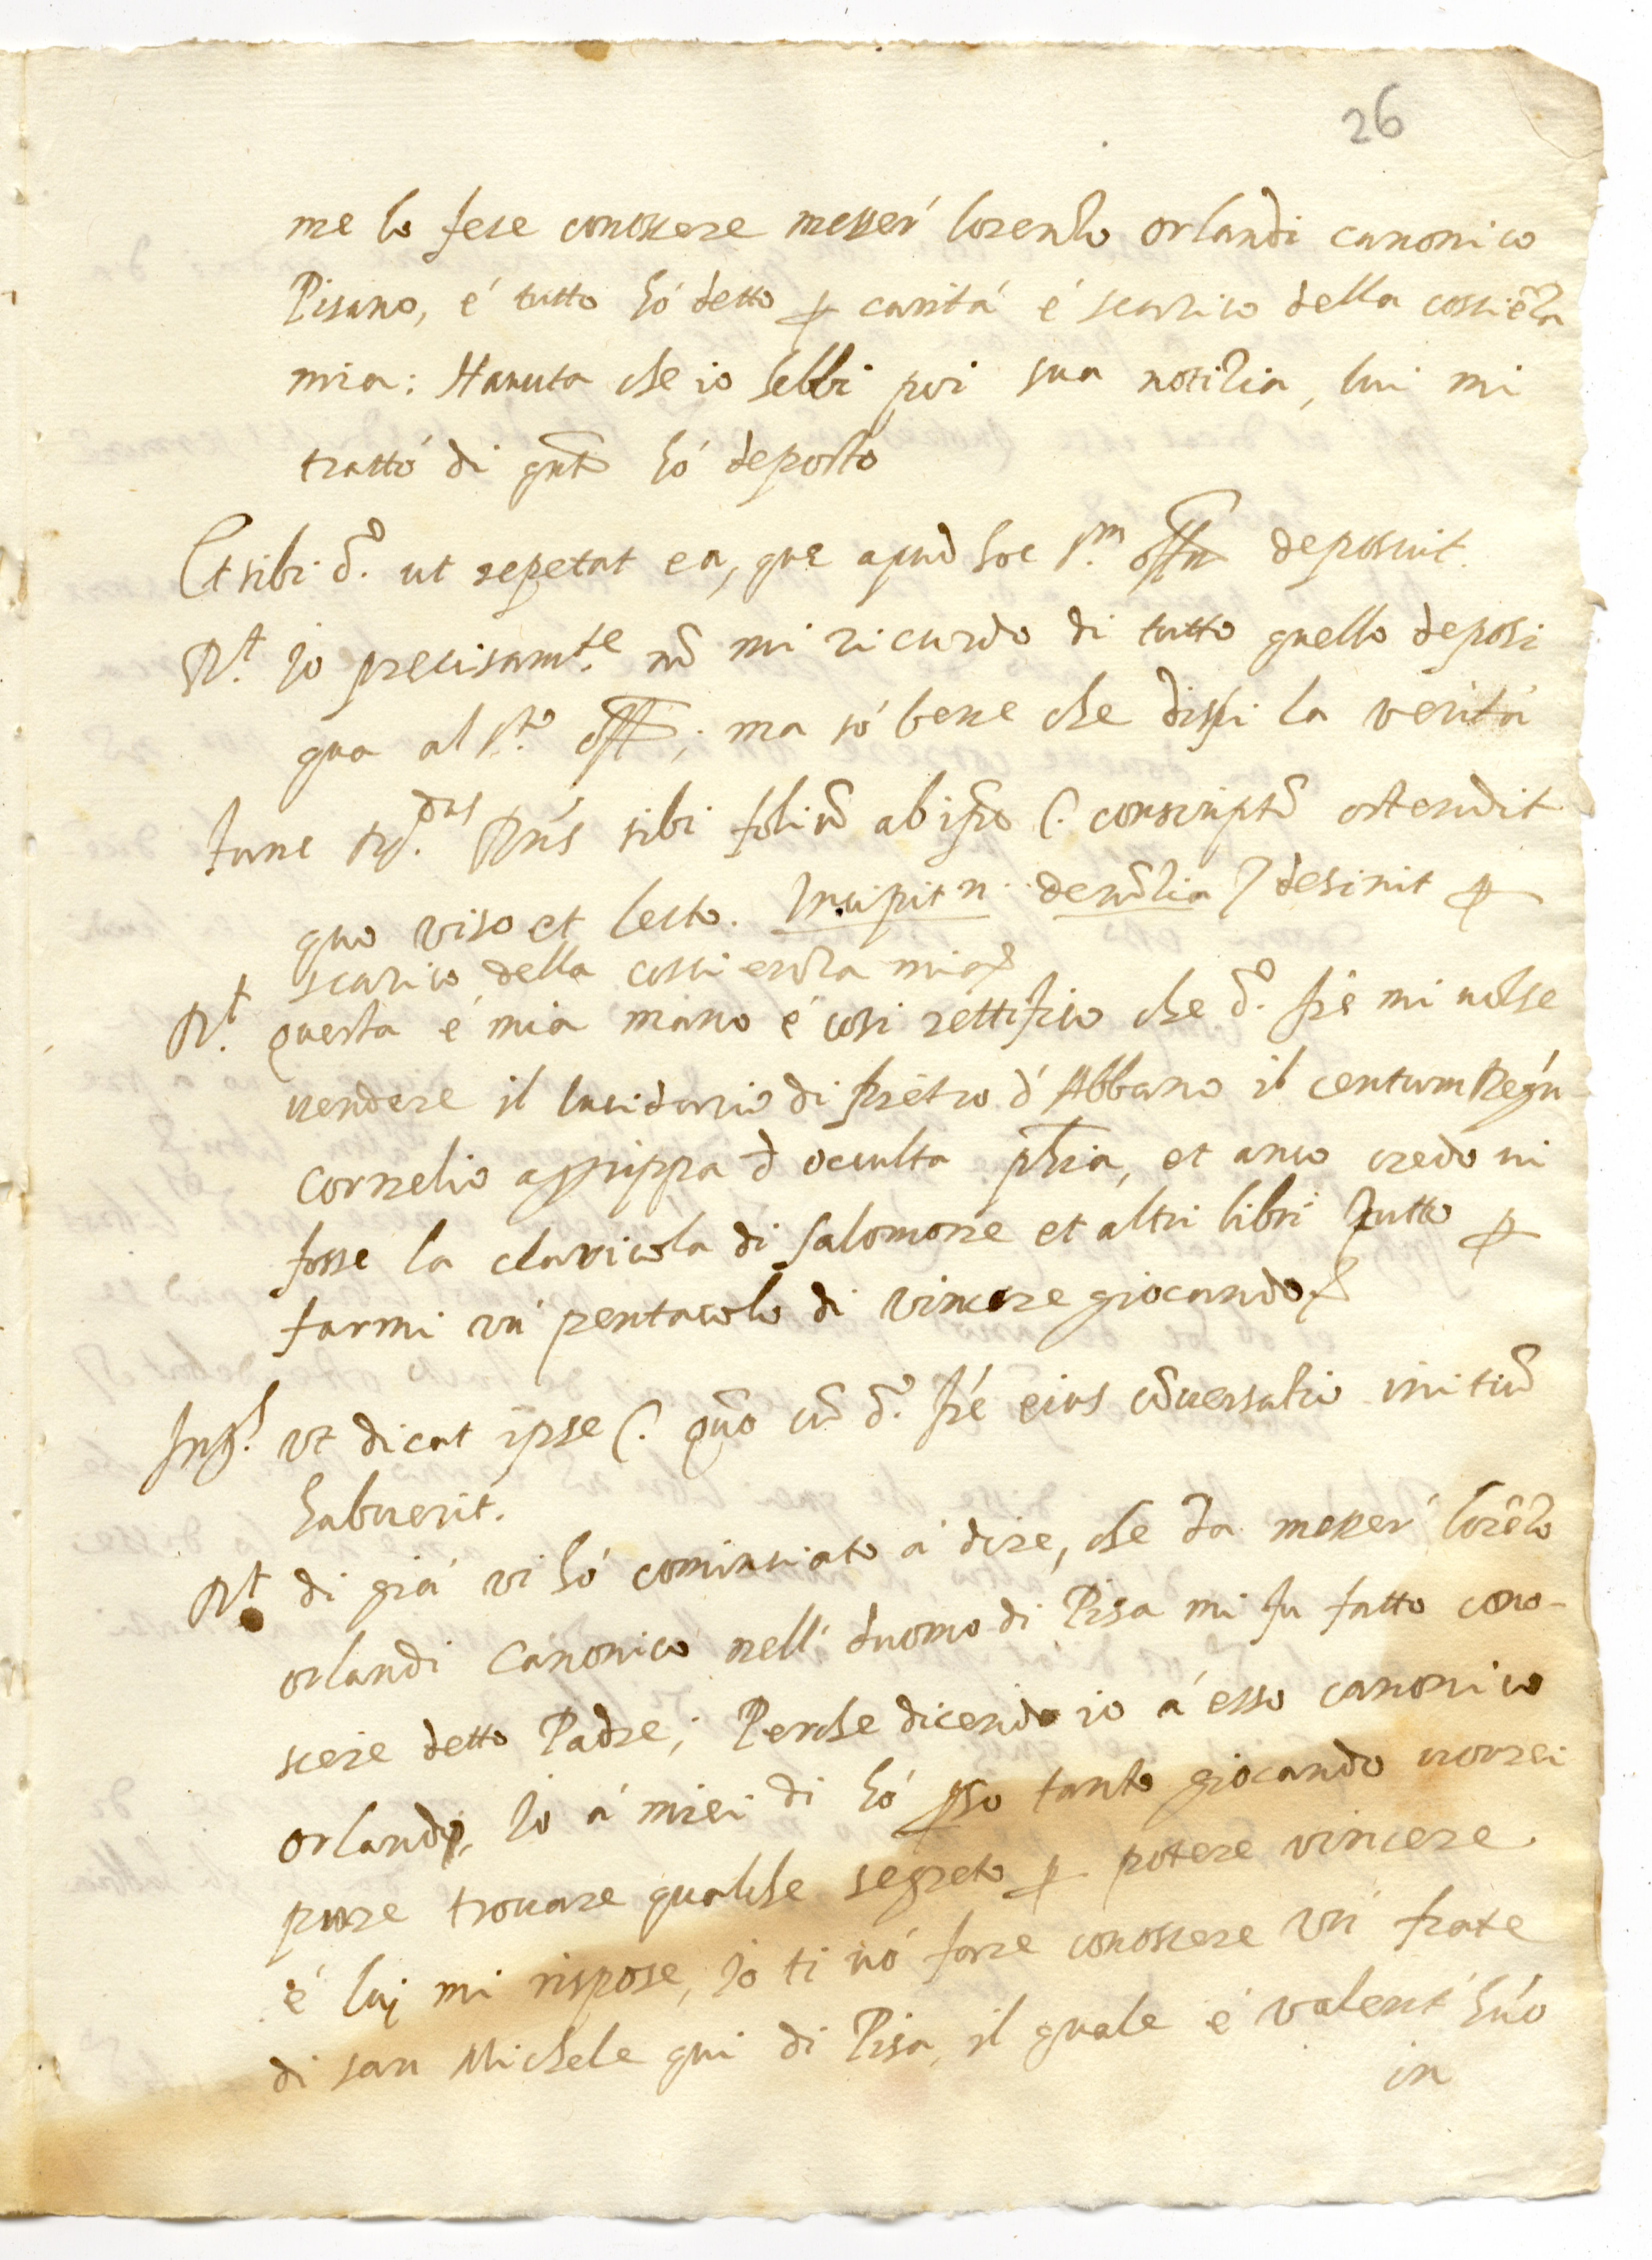 26
me lo fece conoscere messer' lorenzo orlandi canonico
Pisano, é tutto hó detto p caritá é scarico della cosciẽza
mia: Hauuta che io hebbi poi sua notizia, lui mi
trattó di qnto hó deposto
Et sibi d.º ut repetat ea, que apud hoc s.m offm deposuit.
R.t Jo precisam.te nõ mi ricordo di tutto quello deposi
qua al s.to offo; ma só bene che dissi la veritá
Tunc R.dus Pr̃is sibi foliũ ab ipso C. conscriptũ ostendit
quo viso et lecto. Incipit n. denũzia / desinit p
scarico della coscienza mia
R.t questa é mia mano é cosi rettifico che d.º fr̃e mi uolse
uendere il lucidario di Pietro d'Abbano il centum Regũ
cornelio agrippa d occulta phĩa, et anco credo ui
fosse la clauicola di salomone et altri libri tutto p
farmi un' pentacolo di vincere giocando
Int.s vt dicat ipse C. quõ cũ d.º fr̃e eius cõuersatio initiũ
habuerit.
R.t di giá vi hó cominciato á dire, che da messer' lorẽzo
orlandi Canonico nell' duomo di Pisa mi fu fatto cono-
scere detto Padre; Perche dicendo io á esso canonico
orlandi, Jo á miei di hó pso tanto giocando uorrei
pure trouare qualche segreto p potere vincere
é lui mi rispose, Jo ti uó fare conoscere un' frate
di san Michele qui di Pisa, il quale é valent' húo
in